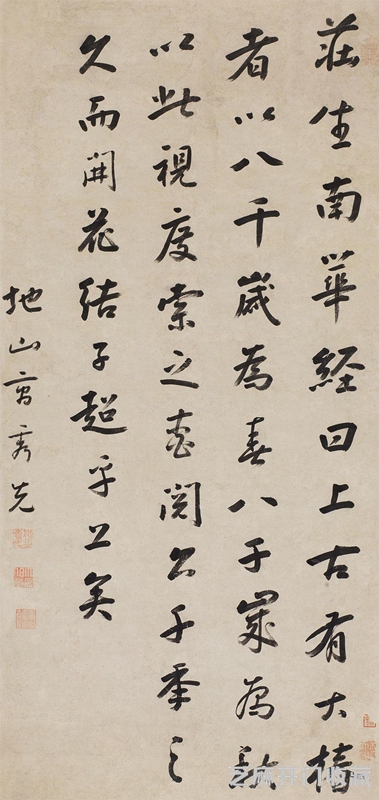 莊生南華經曰上古有大椿
者以八千歲為春八千歲為秋
以此視度索之閱千季之
久而開花結子超乎上矣
地山曹秀先